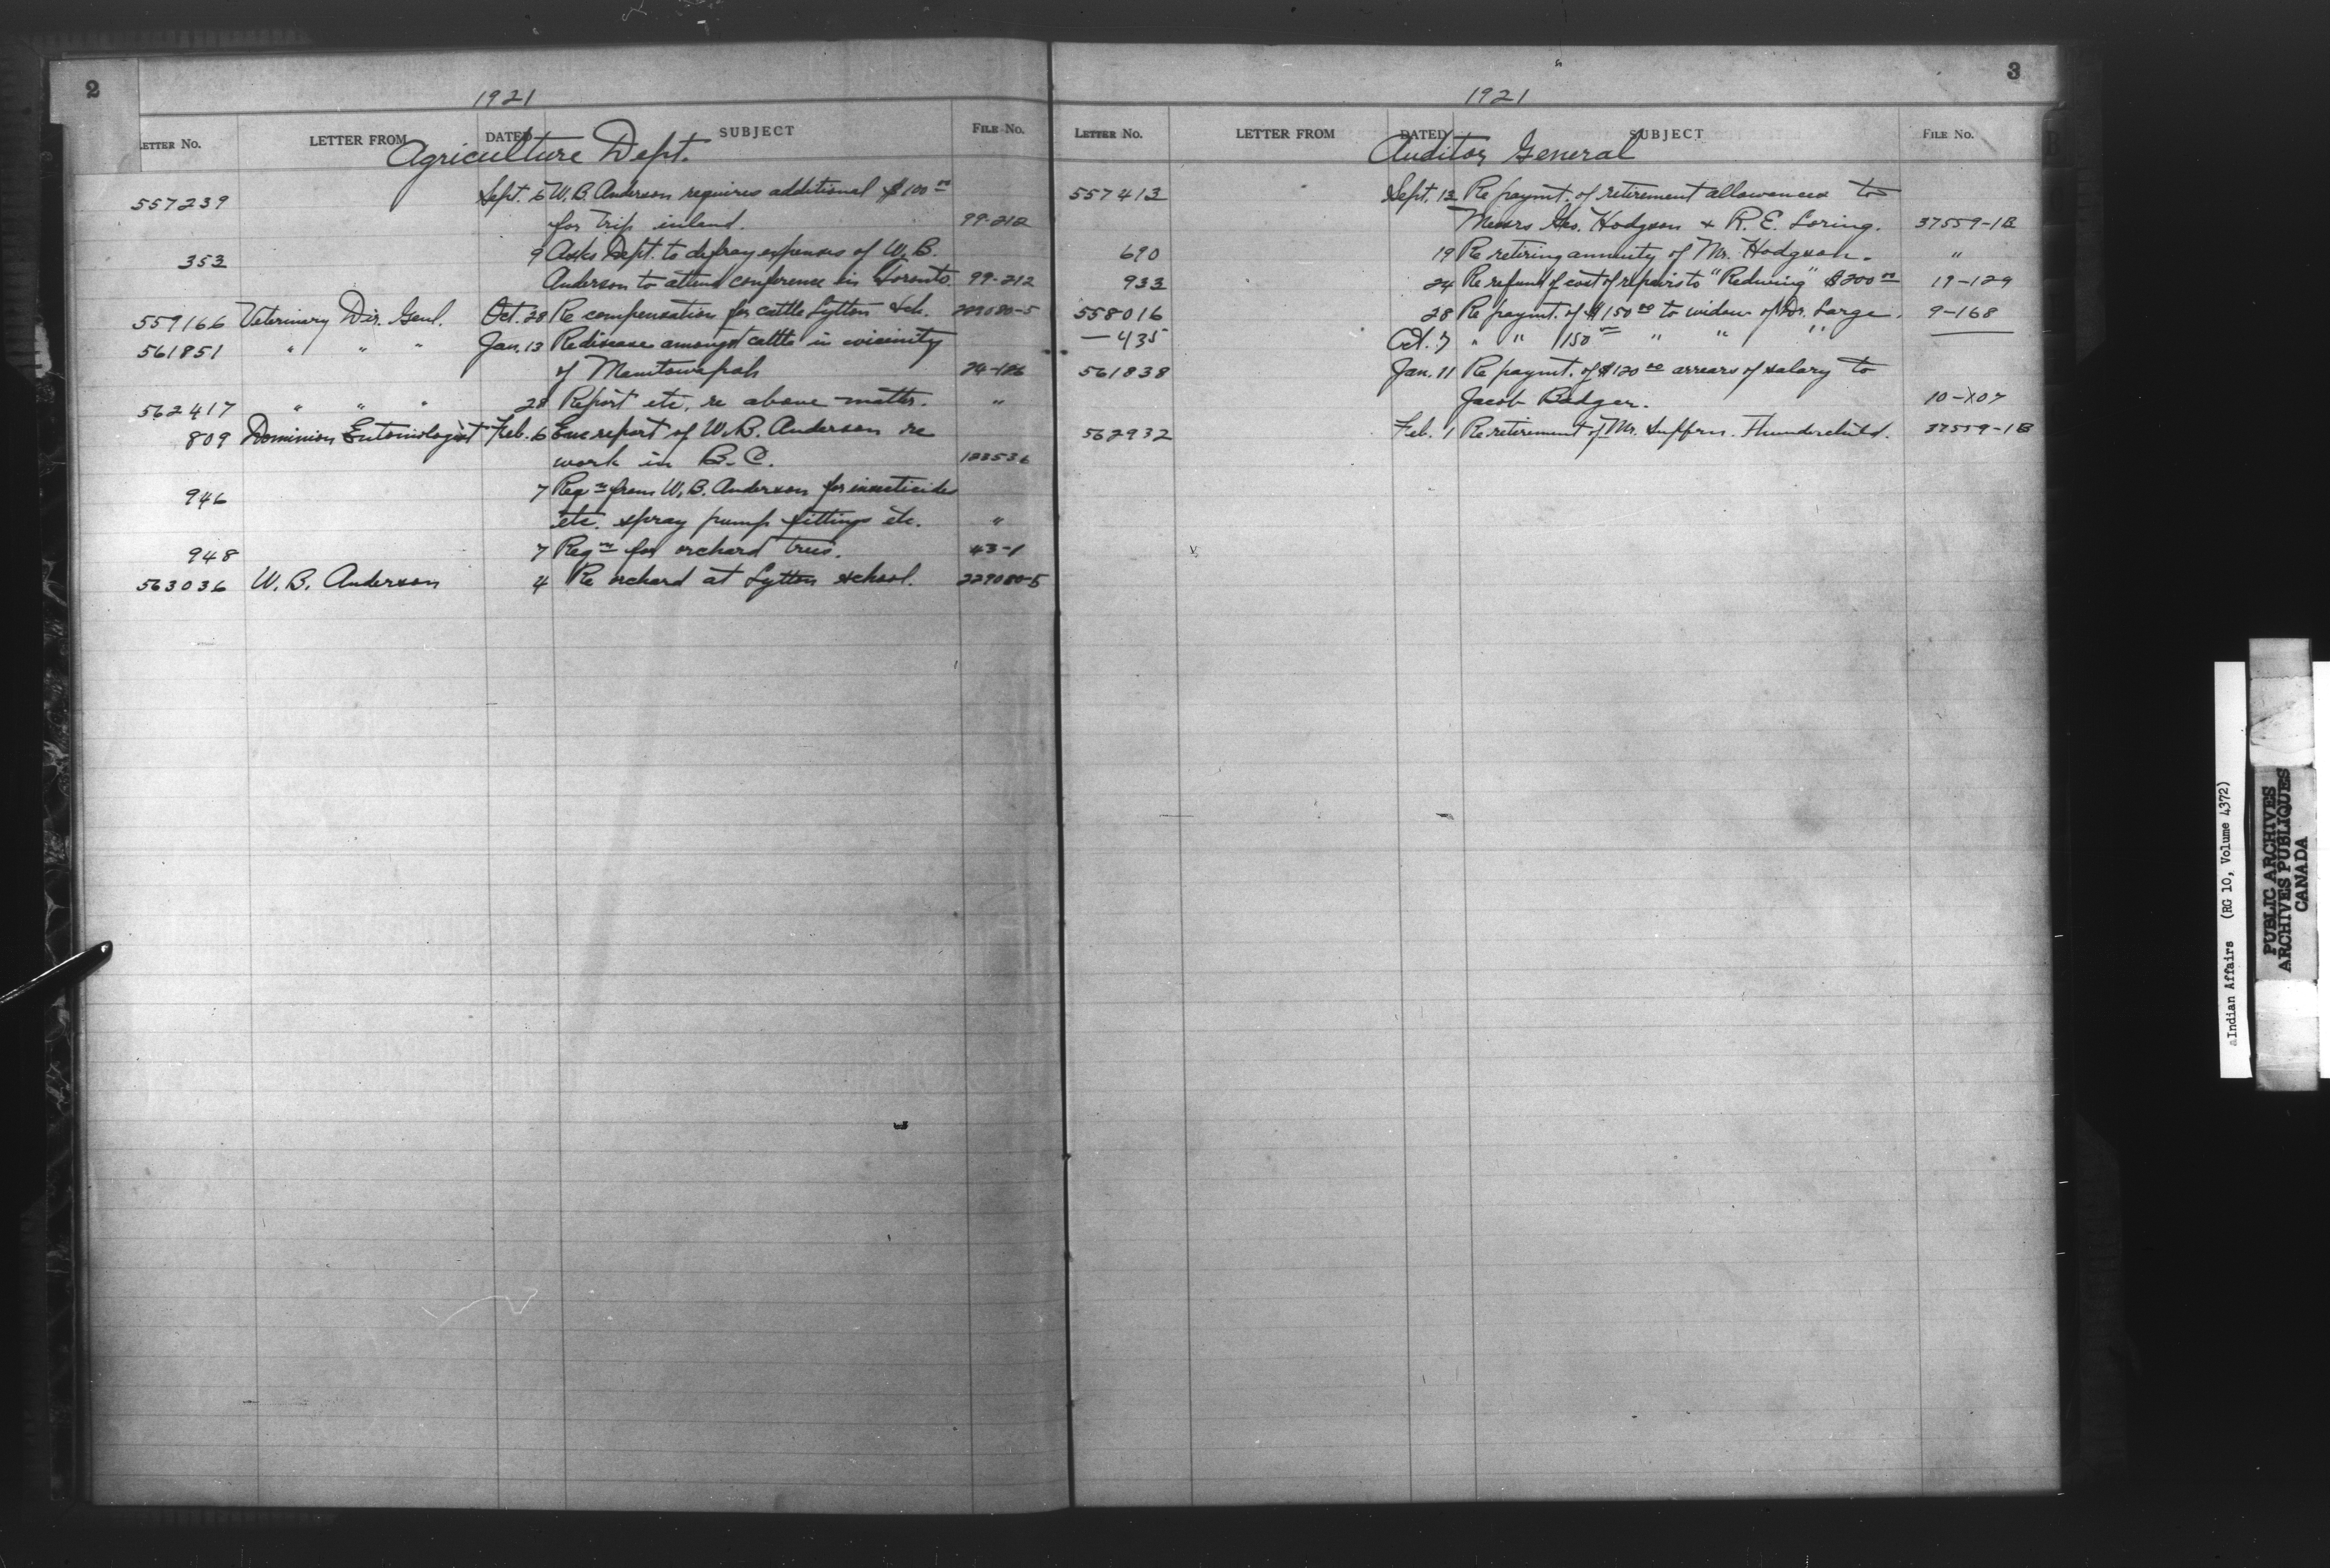 2
1921
LETTER No. LETTER FROM DATED SUBJECT FILE No.
Agriculture Dept.
557239 Sept. 6 W.B. Anderson requires additional $100 00
for trip inland. 99-212
353 9 Asks Dept. to defray expenses of W.B.
Anderson to attend conference in Toronto. 99-212
559166 Veterinary Dir. Genl. Oct. 28 Re compensation for cattle Lytton Sch. 229080-5
561851 " " " Jan. 13 Re disease amongst cattle in vicinity
of 24-186
562417 " " " 28 Report etc. re above matter. "
809 Dominion Entomologist Feb. 6 Enc report of W.B. Anderson re
work in B.C. 123536
946 7 Reqn from W.B. Anderson for insecticides
etc. spray pump fittings etc. "
948 7 Reqn for orchard trees. 43-1
563036 W.B. Anderson 4 Re orchard at Lytton school. 229080-5
3
1921
LETTER No. LETTER FROM DATED SUBJECT FILE No.
Auditor General
557413 Sept. 12 Re paymt. of retirement allowances to
Messrs Geo. Hodgson & R.E. Loring. 37559-1B
690 19 Re retiring annuity of Mr. Hodgson. "
933 24 Re refund of cost of repairs to "Redwing" $200 00 19-129
558016 28 Re paymt. of $150 00 to widow of Dr. Large. 9-168
— 435 Oct. 7 " " 150 00 " " " —
561838 Jan. 11 Re paymt. of $120 00 arrears of salary to
Jacob Badger. 10-107
562932 Feb. 1 Re retirement of Mr. Thunderchild. 37559-1B
Indian Affairs (RG 10, Volume 4372)
PUBLIC ARCHIVES
ARCHIVES PUBLIQUES
CANADA